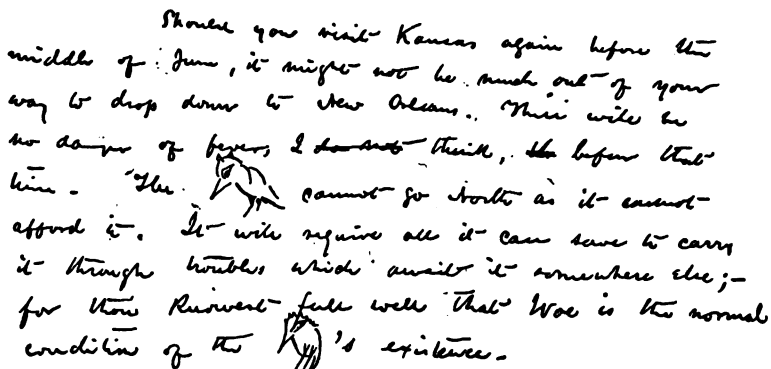 Should you visit Kansas again before the
middle of June, it might not be much out of your
way to drop down to New Orleans. There will be
no danger of fever, I do not think, before that
time. The cannot go North as it cannot
afford it. It will require all it can save to carry
it through troubles which await it somewhere else;—
for thou knowest full well that Woe is the normal
condition of the 's existence.